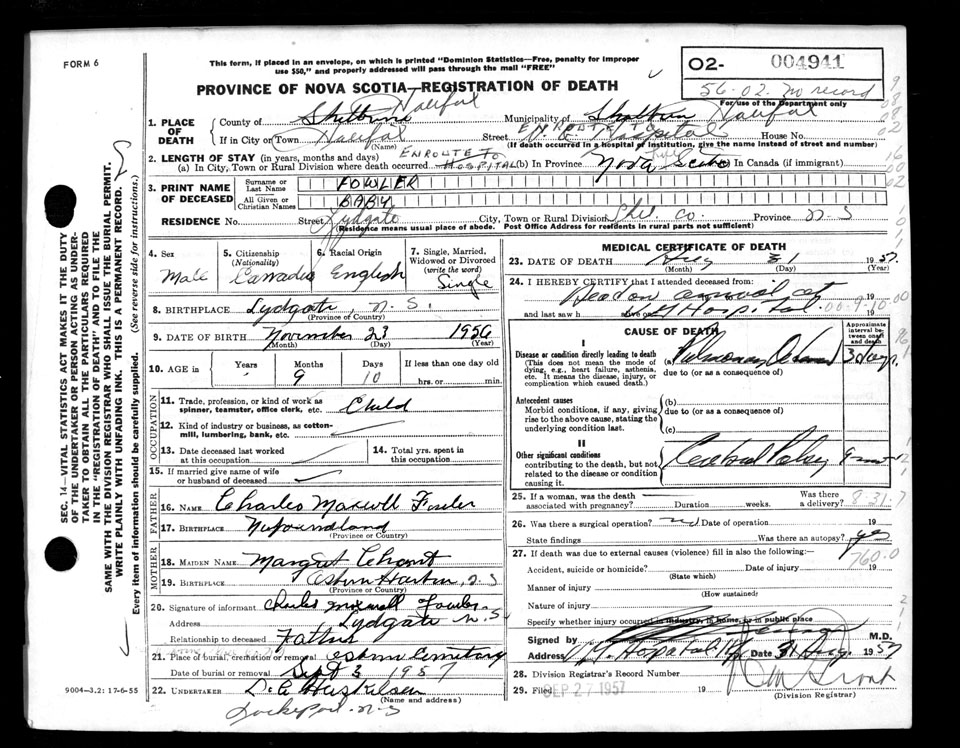 FORM 6
This form, if placed in an envelope, on which is printed "Dominion Statistics—Free, penalty for improper
use $50," and properly addressed will pass through the mail "FREE"
O2- 004941
56-02. no record
PROVINCE OF NOVA SCOTIA—REGISTRATION OF DEATH
For use of the Department only
1. PLACE OF DEATH
County of Shelburne Halifax Municipality of Shelburne Halifax
ENROUTE TO
If in City or Town Halifax (Name) Street V. G. Hospital House No.
(If death occurred in a hospital or institution, give the name instead of street and number)
2. LENGTH OF STAY (in years, months and days) ENROUTE TO
(a) In City, Town or Rural Division where death occurred HOSPITAL (b) In Province Nova Scotia (c) In Canada (if immigrant)
3. PRINT NAME OF DECEASED
Surname or Last Name FOWLER
All Given or Christian Names BABY
RESIDENCE No. Street Lydgate City, Town or Rural Division Shel. Co. Province N-S
(Residence means usual place of abode. Post Office Address for residents in rural parts not sufficient)
4. Sex Male
5. Citizenship (Nationality) Canadian
6. Racial Origin English
7. Single, Married, Widowed or Divorced (write the word) Single
8. BIRTHPLACE Lydgate, N. S.
(Province or Country)
9. DATE OF BIRTH November 23 1956
(Month) (Day) (Year)
10. AGE in Years Months 9 Days 10 If less than one day old hrs. or min.
OCCUPATION
11. Trade, profession, or kind of work as spinner, teamster, office clerk, etc. Child
12. Kind of industry or business, as cotton-mill, lumbering, bank, etc.
13. Date deceased last worked at this occupation
14. Total yrs. spent in this occupation
15. If married give name of wife or husband of deceased
FATHER
16. NAME Charles Maxwell Fowler
17. BIRTHPLACE Newfoundland
(Province or Country)
MOTHER
18. MAIDEN NAME Margret
19. BIRTHPLACE Osborne Harbour, N. S
(Province or Country)
20. Signature of informant Charles Maxwell Fowler
Address Lydgate N. S
Relationship to deceased Father
21. Place of burial, cremation or removal Osborne Cemetery
Date of burial or removal Sept 3 1957
22. UNDERTAKER
(Name and address)
Lockeport. N-S
9004—3.2: 17-6-55
MEDICAL CERTIFICATE OF DEATH
23. DATE OF DEATH Aug 31 1957
(Month) (Day) (Year)
24. I HEREBY CERTIFY that I attended deceased from:
Dead on arrival at 19
and last saw h alive Hospital 19
CAUSE OF DEATH
Approximate interval between onset and death
I
Disease or condition directly leading to death
(This does not mean the mode of dying, e.g., heart failure, asthenia, etc. It means the disease, injury, or complication which caused death.)
(a) Pulmonary Oedema 3 days
due to (or as a consequence of)
Antecedent causes
Morbid conditions, if any, giving rise to the above cause, stating the underlying condition last.
(b)
due to (or as a consequence of)
(c)
II
Other significant conditions
contributing to the death, but not related to the disease or condition causing it.
Cerebral Palsy 9 mos
25. If a woman, was the death associated with pregnancy? Duration weeks. Was there a delivery?
8-31.7
26. Was there a surgical operation? no Date of operation 19
State findings Was there an autopsy? yes
27. If death was due to external causes (violence) fill in also the following:
760.0
Accident, suicide or homicide? Date of injury 19
(State which)
Manner of injury
(How sustained)
Nature of injury
Specify whether injury occurred in industry, in home, or in public place
Signed by M.D.
Address V.G. Hospital Hfx Date 31 Aug. 1957
28. Division Registrar's Record Number
29. Filed SEP 27 1957 19
(Division Registrar)
SEC. 14—VITAL STATISTICS ACT MAKES IT THE DUTY
OF THE UNDERTAKER OR PERSON ACTING AS UNDER-
TAKER TO OBTAIN ALL THE PARTICULARS REQUIRED
IN THE "REGISTRATION OF DEATH" AND TO FILE THE
SAME WITH THE DIVISION REGISTRAR WHO SHALL ISSUE THE BURIAL PERMIT.
WRITE PLAINLY WITH UNFADING INK. THIS IS A PERMANENT RECORD.
Every item of information should be carefully supplied. (See reverse side for instructions.)